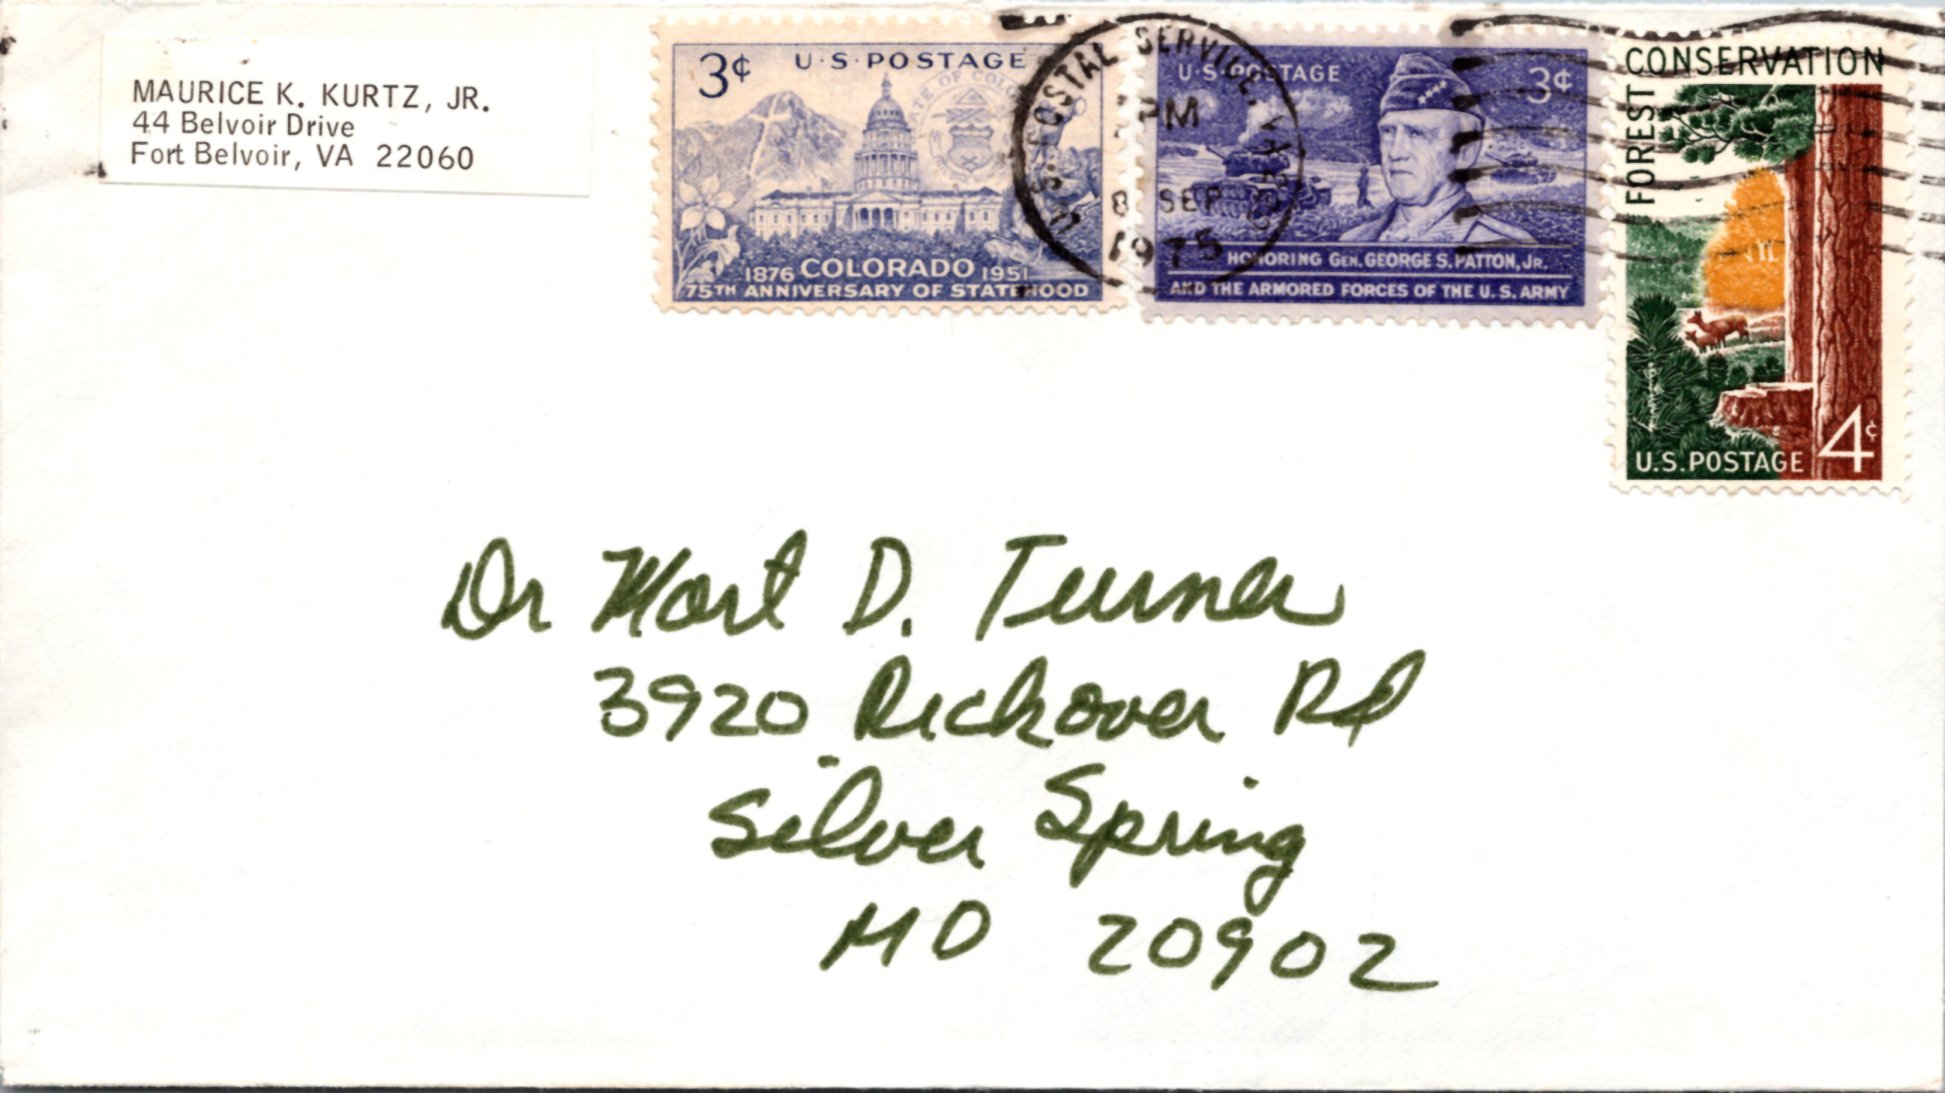 MAURICE K. KURTZ, JR.
44 Belvoir Drive
Fort Belvoir, VA 22060
3¢ U·S·POSTAGE
STATE OF COLO
1876 COLORADO 1951
75TH ANNIVERSARY OF STATEHOOD
U.S. POSTAL SERVICE, VA
PM
8 SEP
1975
U·S·POSTAGE 3¢
HONORING GEN. GEORGE S. PATTON, JR.
AND THE ARMORED FORCES OF THE U. S. ARMY
FOREST
CONSERVATION
U.S. POSTAGE 4¢
Dr Mort D. Turner
3920 Rickover Rd
Silver Spring
MD 20902